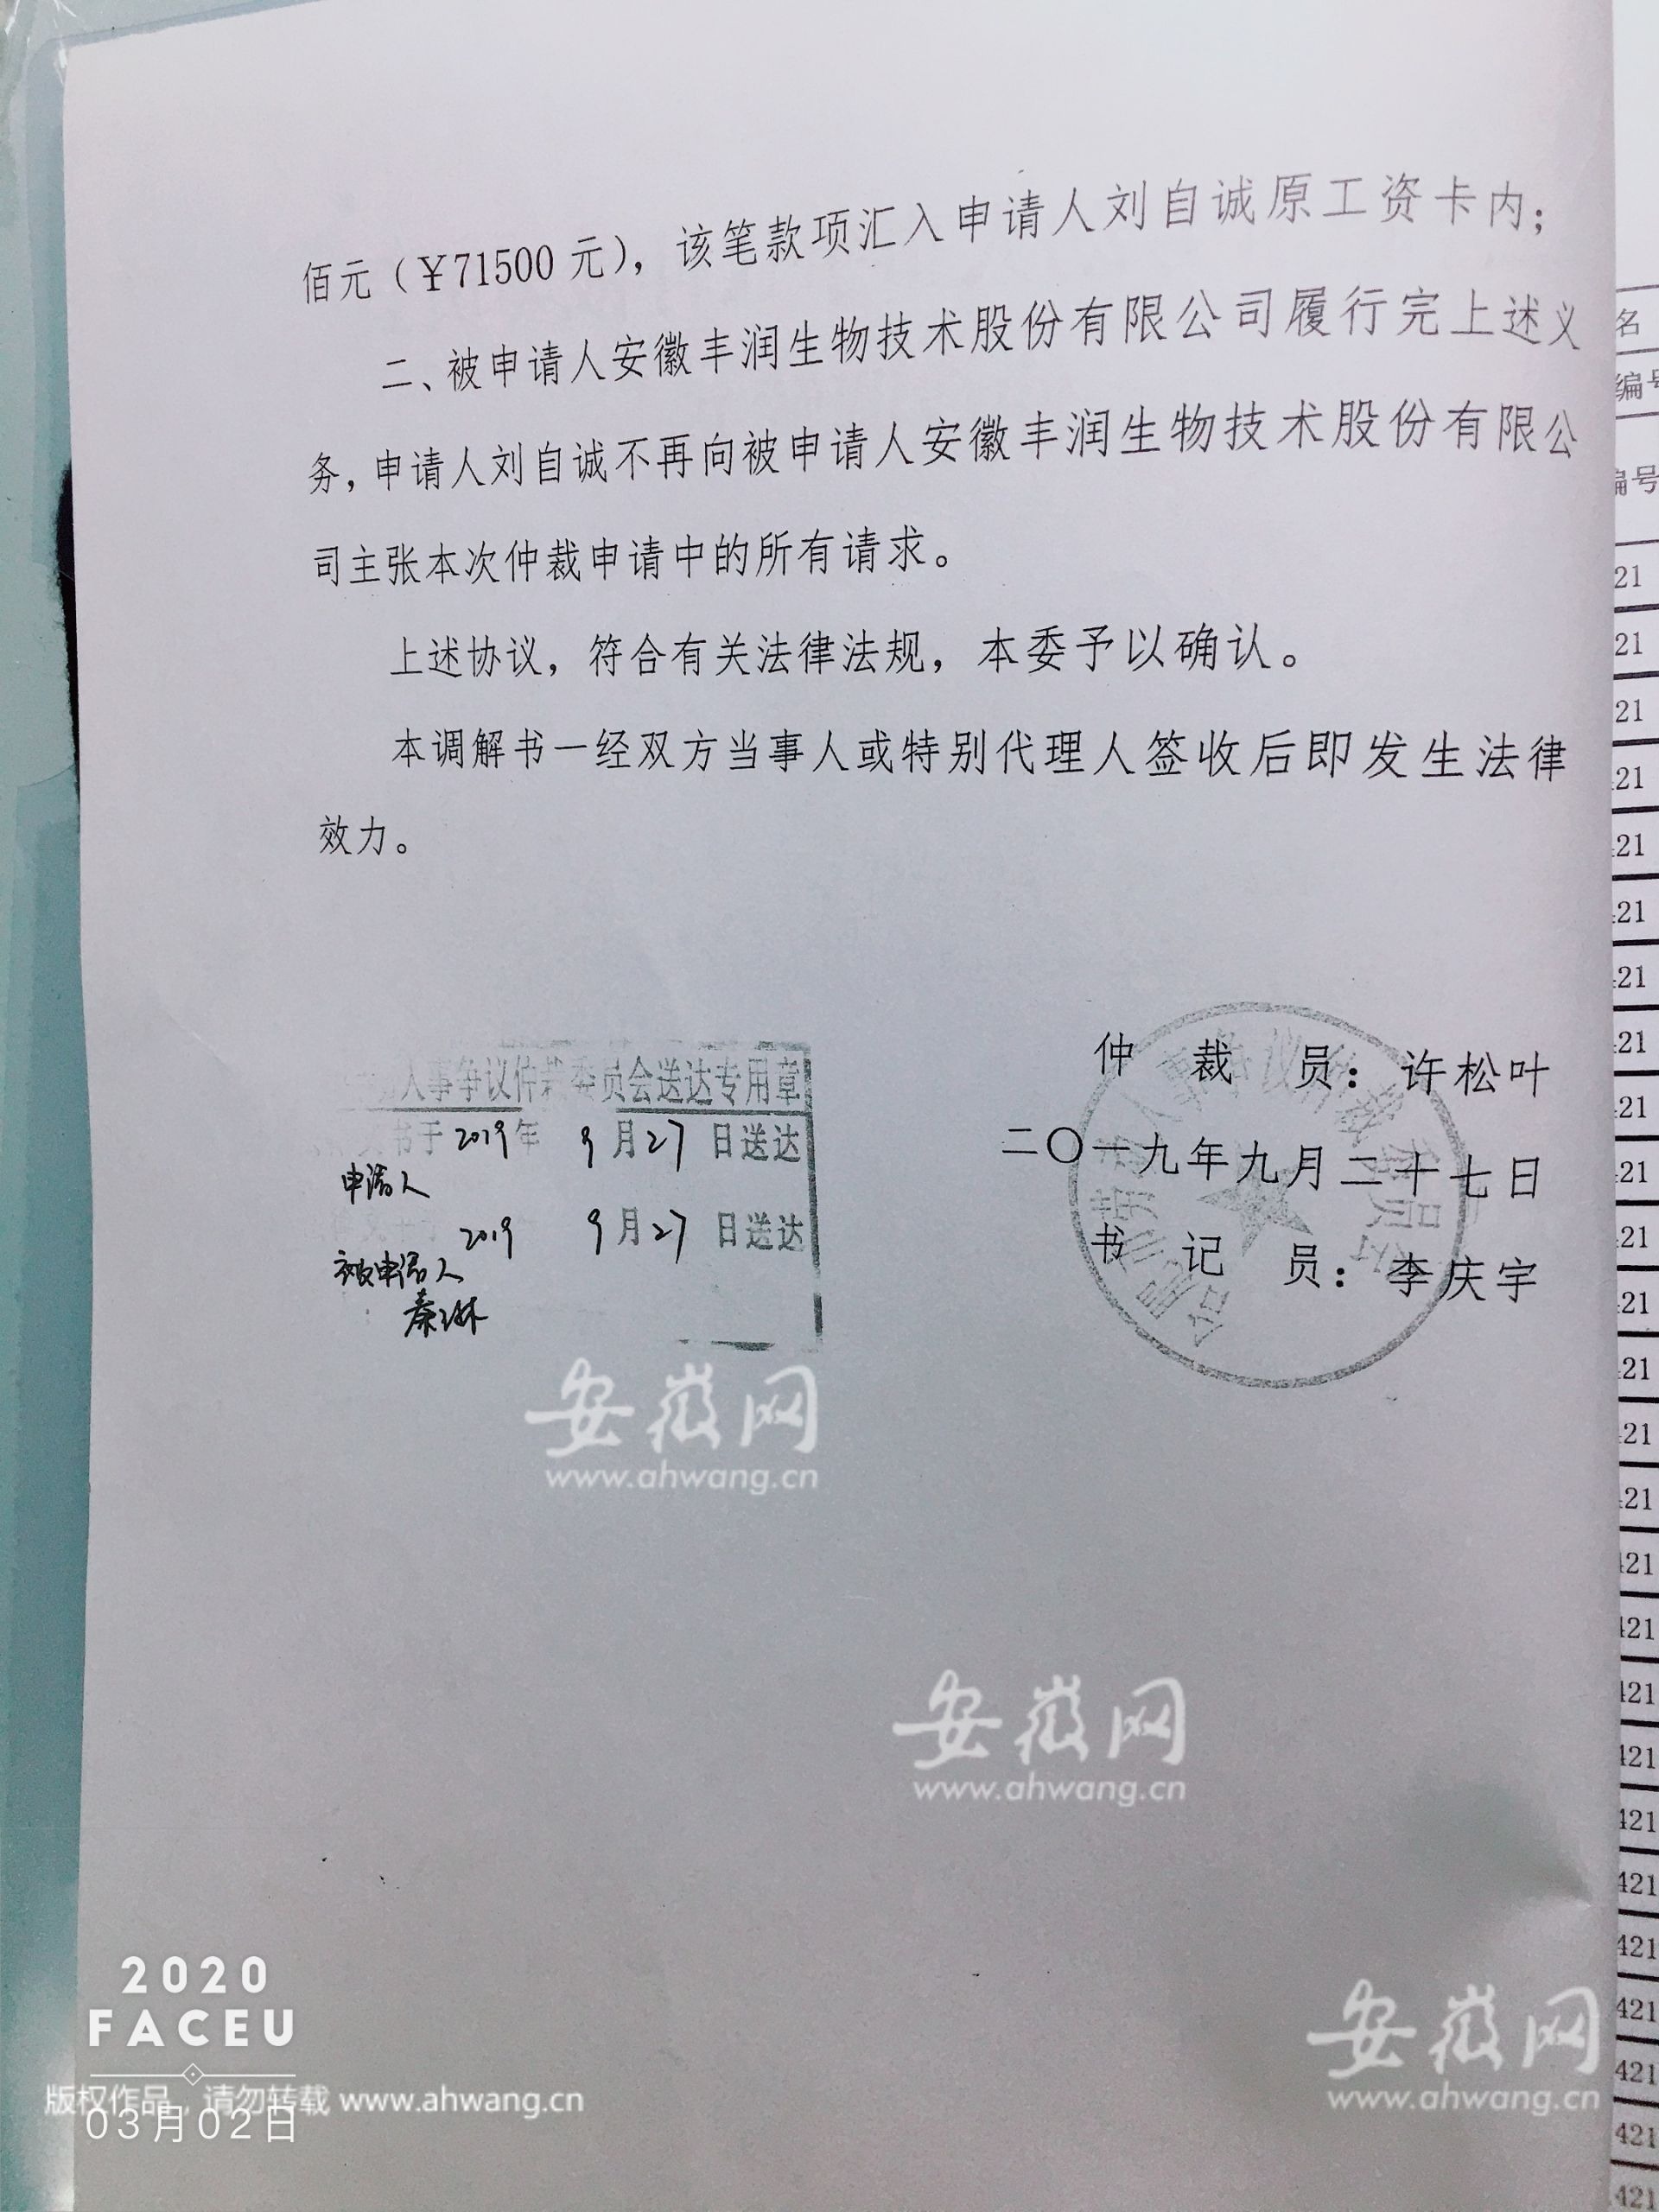 佰元（￥71500元），该笔款项汇入申请人刘自诚原工资卡内；
二、被申请人安徽丰润生物技术股份有限公司履行完上述义
务，申请人刘自诚不再向被申请人安徽丰润生物技术股份有限公
司主张本次仲裁申请中的所有请求。
上述协议，符合有关法律法规，本委予以确认。
本调解书一经双方当事人或特别代理人签收后即发生法律
效力。
仲裁员：许松叶
二〇一九年九月二十七日
书记员：李庆宇
人事争议仲裁委员会送达专用章
书于2019年9月27日送达
申请人
2019 9月27日送达
被申请人
秦琳
安徽网
www.ahwang.cn
安徽网
www.ahwang.cn
安徽网
www.ahwang.cn
2020
FACEU
版权作品，请勿转载 www.ahwang.cn
03月02日
名
编号
编号
21
21
21
21
21
21
21
21
21
21
21
21
21
21
21
21
421
421
421
421
421
421
421
421
421
421